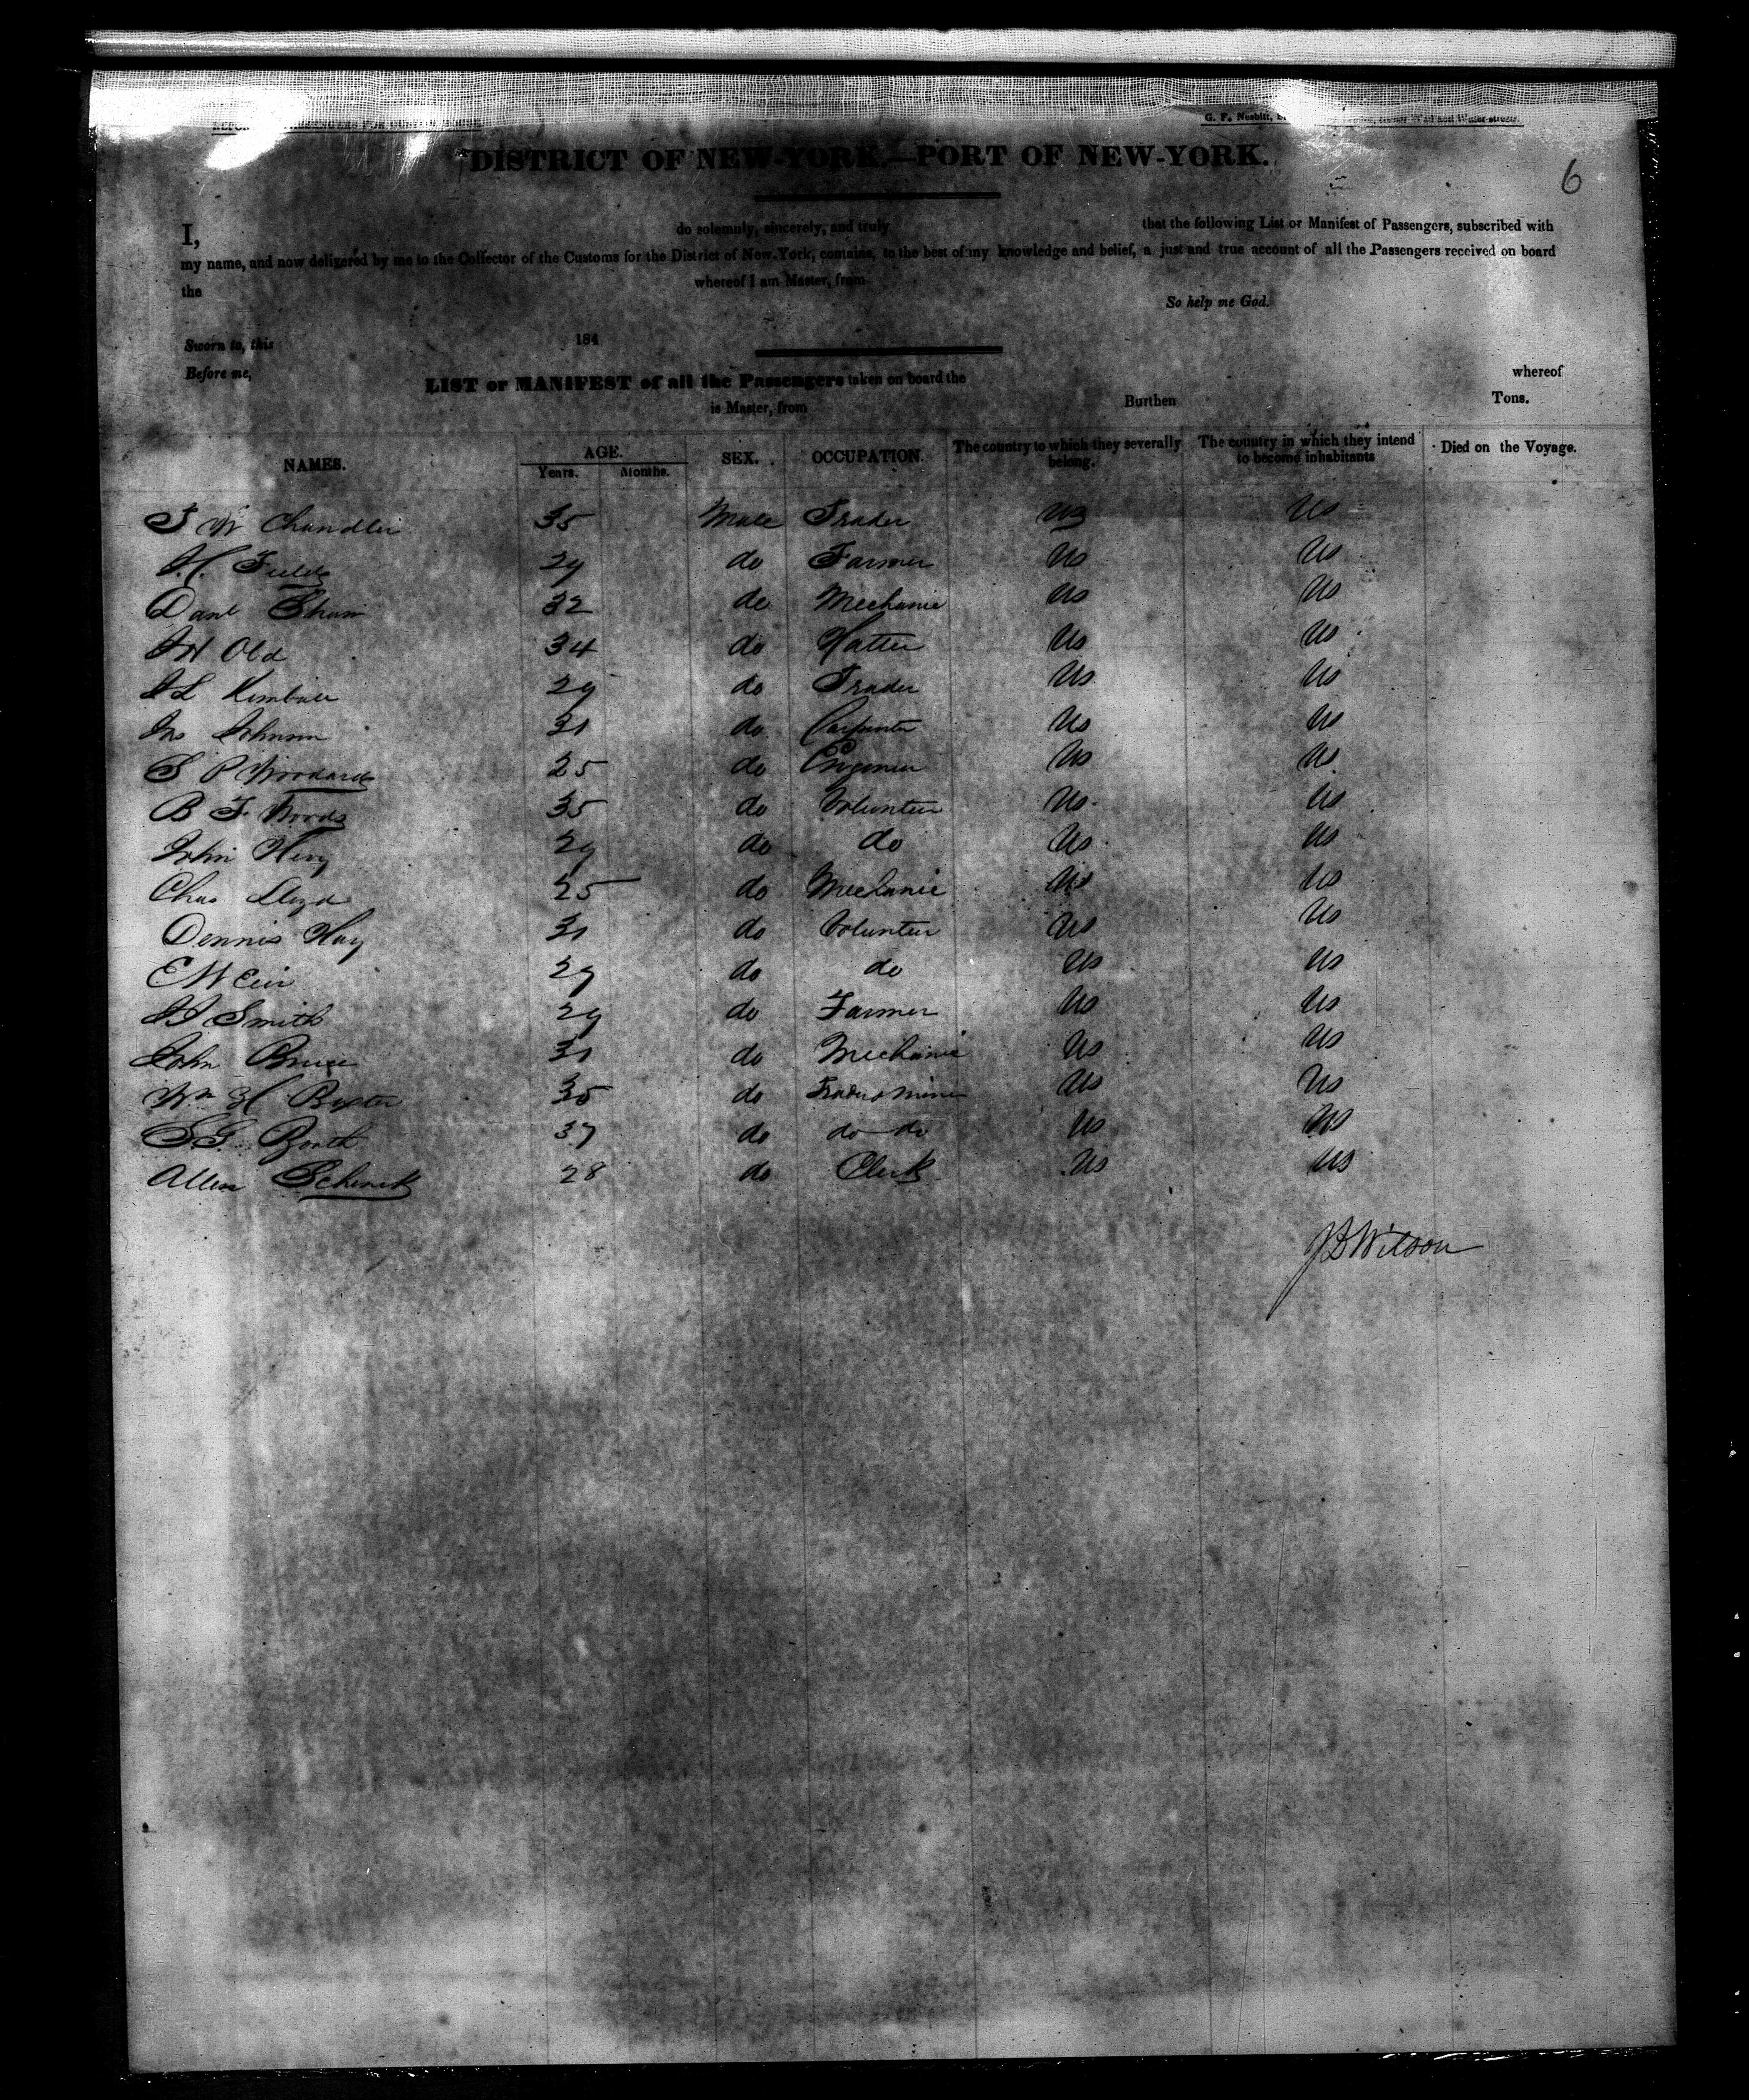 REPORT PASSENGERS FOR CUSTOM HOUSE
G. F. Nesbitt, corner Wall and Water-streets.
DISTRICT OF NEW-YORK,—PORT OF NEW-YORK.
6
I, do solemnly, sincerely, and truly that the following List or Manifest of Passengers, subscribed with
my name, and now delivered by me to the Collector of the Customs for the District of New-York, contains, to the best of my knowledge and belief, a just and true account of all the Passengers received on board
the whereof I am Master, from
So help me God.
Sworn to, this 184
Before me,
LIST or MANIFEST of all the Passengers taken on board the whereof
is Master, from Burthen Tons.
NAMES. AGE. Years. Months. SEX. OCCUPATION. The country to which they severally belong. The country in which they intend to become inhabitants Died on the Voyage.
J W Chandler 35 Male Trader US US
H. Fields 29 do Farmer US US
Danl 32 do Mechanic US US
Old 34 do Hatter US US
Kimball 29 do Trader US US
Jno Johnson 31 do Carpenter US US
S P Woodard 25 do Engineer US US
B F Woods 35 do Volunteer US US
John 29 do do US US
Chas Lloyd 25 do Mechanic US US
Dennis Hay 31 do Volunteer US US
E Weir 29 do do US US
Smith 29 do Farmer US US
John Bruce 31 do Mechanic US US
Wm H Baxter 35 do US US
S G 37 do do do US US
Allen Schenck 28 do Clerk US US
J B Wilson